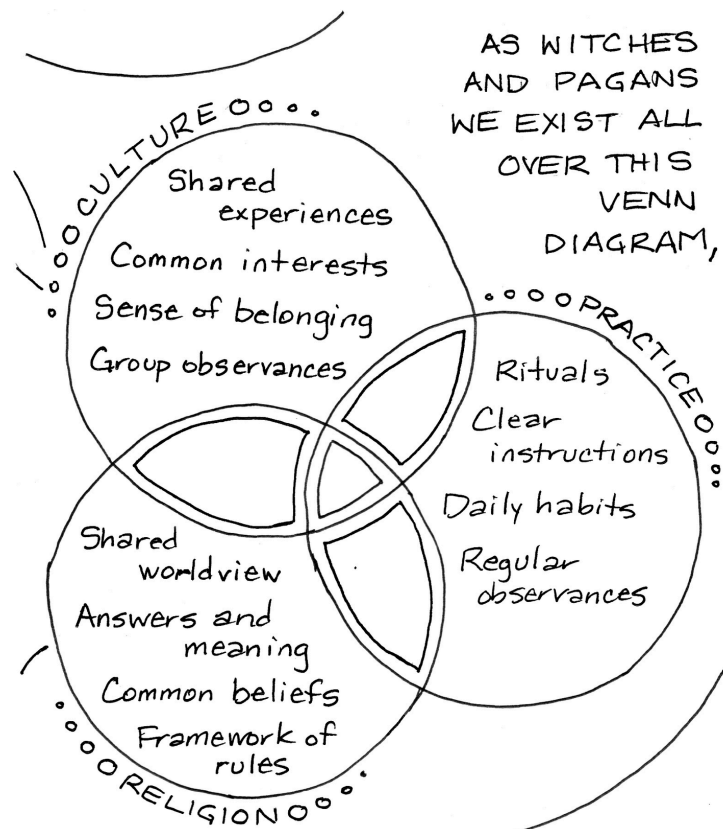 AS WITCHES
AND PAGANS
WE EXIST ALL
OVER THIS
VENN
DIAGRAM,
CULTURE
Shared
experiences
Common interests
Sense of belonging
Group observances
PRACTICE
Rituals
Clear
instructions
Daily habits
Regular
observances
Shared
worldview
Answers and
meaning
Common beliefs
Framework of
rules
RELIGION